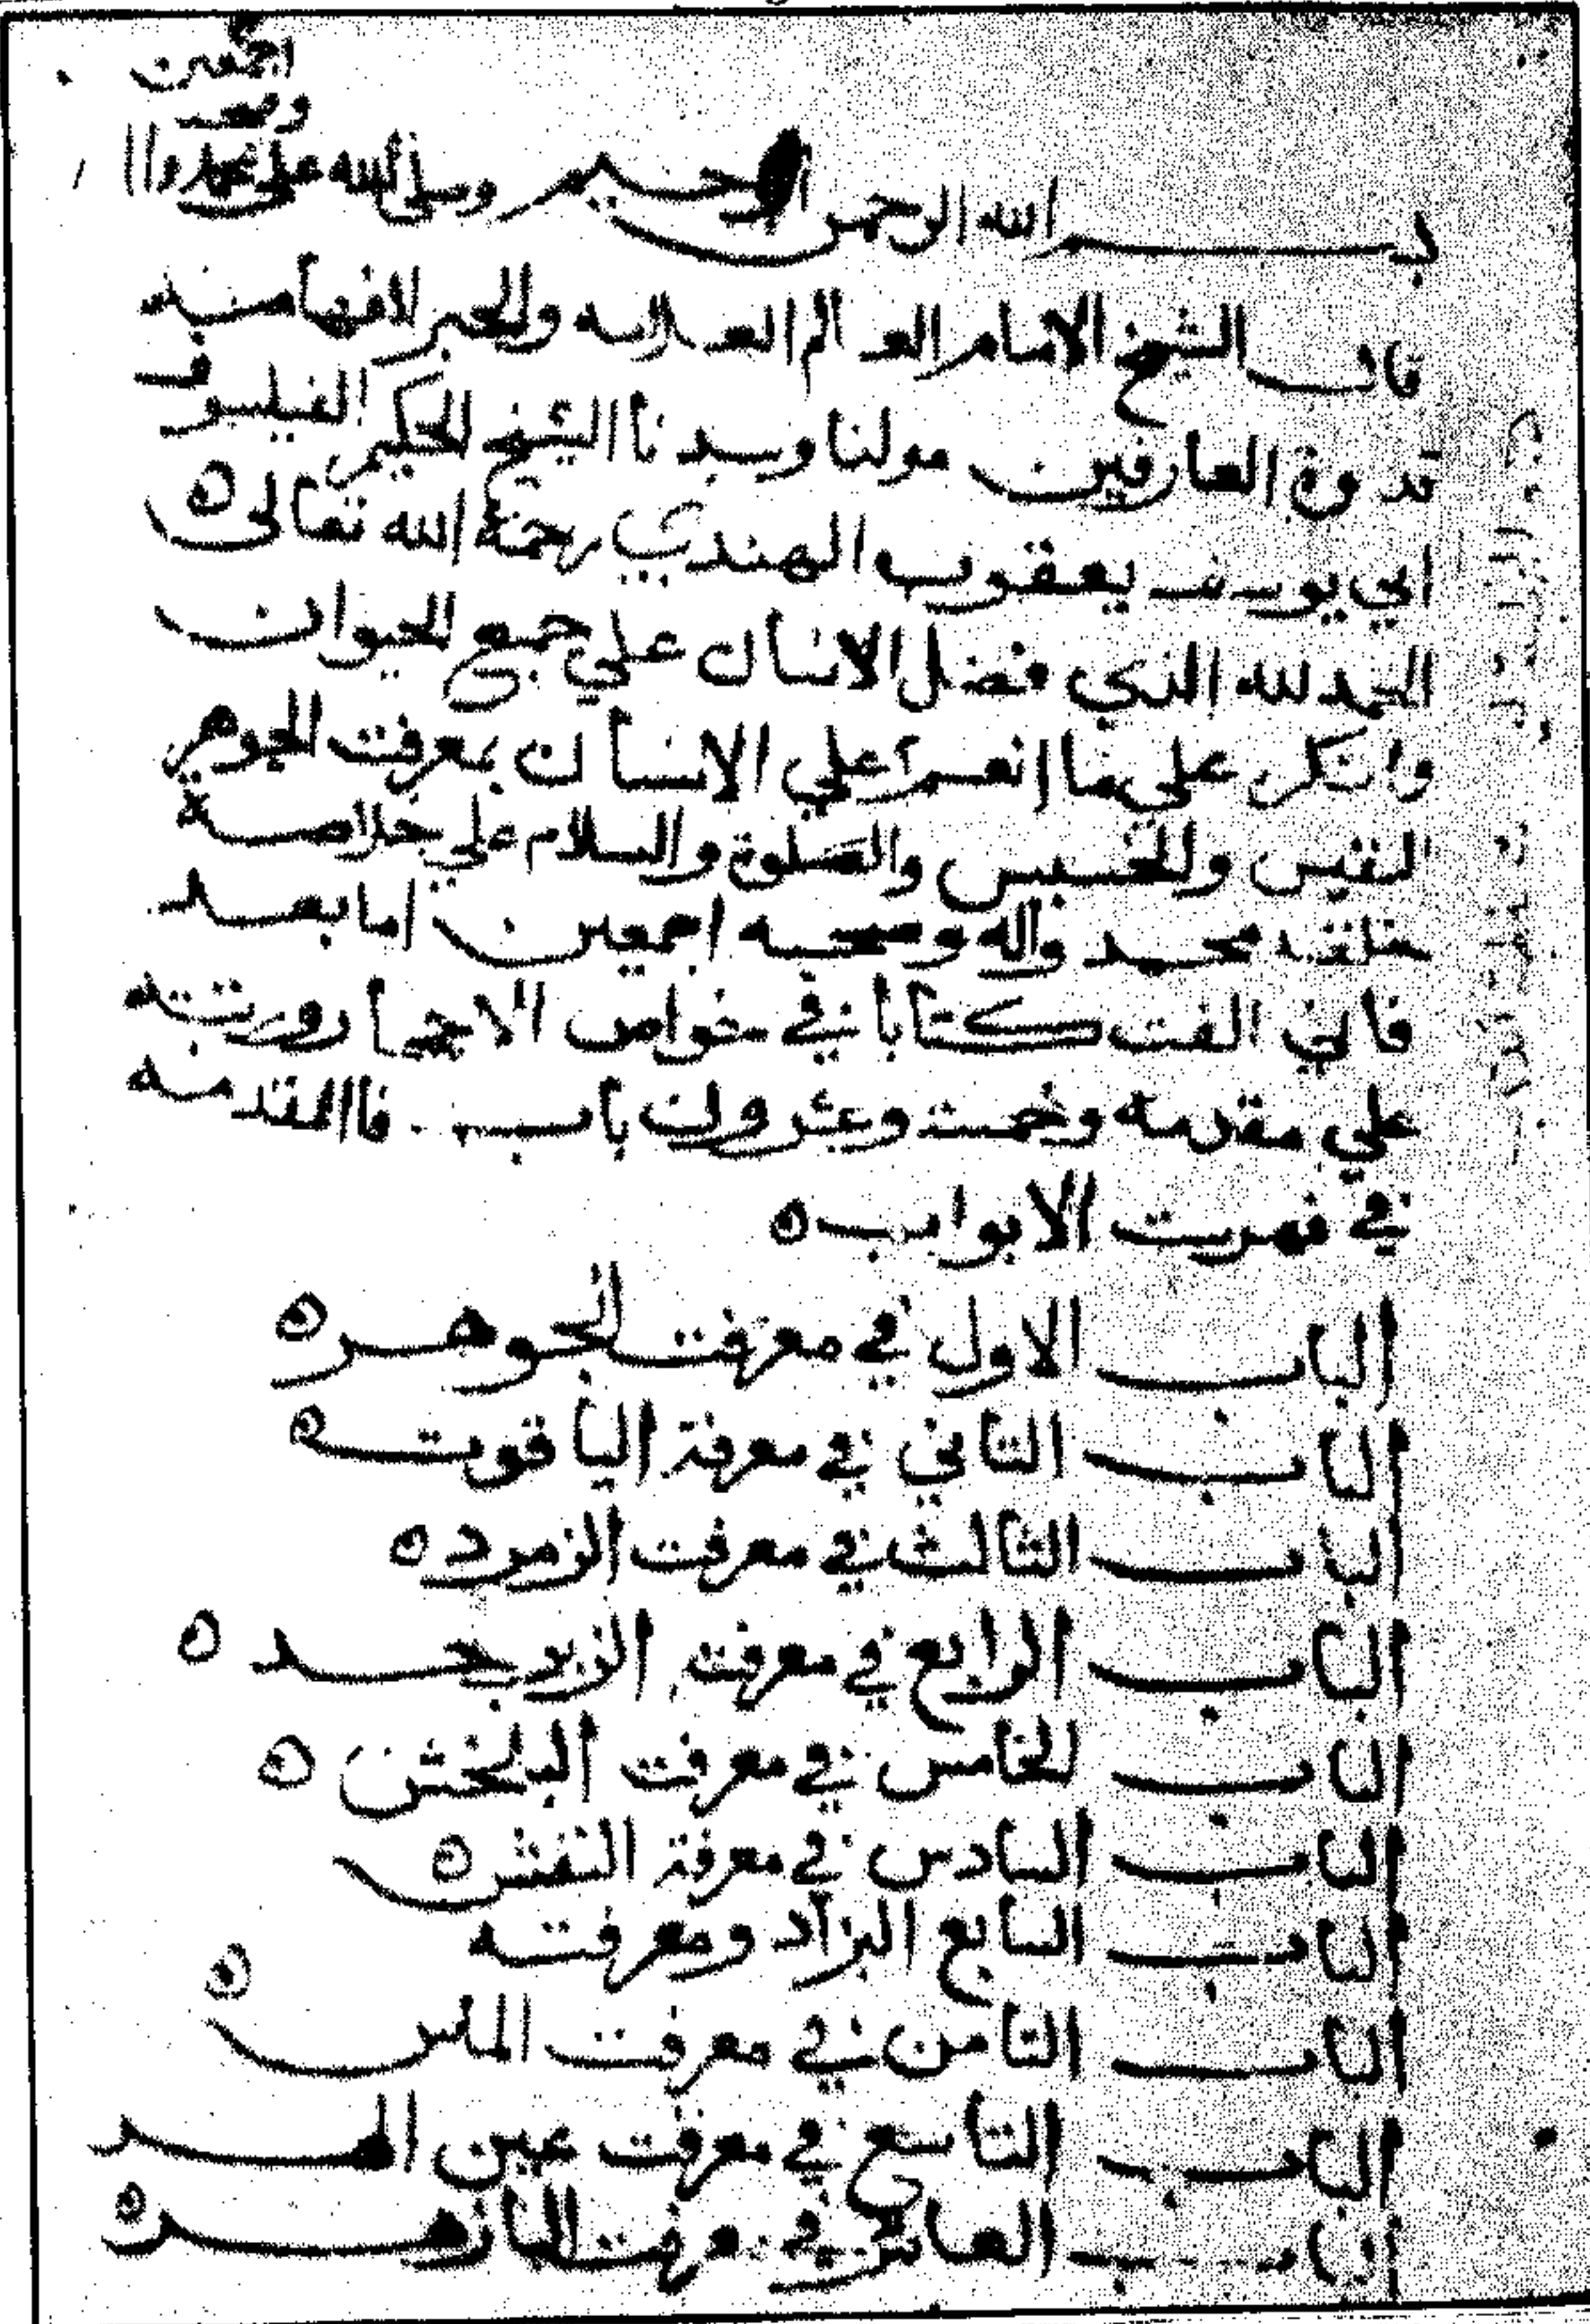 بسم الله الرحمن الرحيم وصلى الله على محمد وال
وصحبه
اجمعين
قال الشيخ الامام العالم العلامه والحبر الافهامنيه
قدوة العارفين مولنا وسيدنا الشيخ الحكيم الفيلسوف
ابي يوسف يعقوب الهندي رحمة الله تعالى
الحمد لله الذي فضل الانسان علي جميع الحيوان
واشكر علي ما انعم علي الانسان بمعرفت الجوهر
النفيس والخسيس والصلوة والسلام علي خلاصة
خلقه محمد واله وصحبه اجمعين اما بعد
فاني الفت كتابا في خواص الاحجار ورتبته
علي مقدمه وخمست وعشرون باب . فاالمقدمه
في فهرست الابواب ه
الباب الاول في معرفت الجوهر ه
الباب الثاني في معرفة الياقوت ه
الباب الثالث في معرفت الزمرد ه
الباب الرابع في معرفت الزبرجد ه
الباب الخامس في معرفت البلخش ه
الباب السادس في معرفة النفش ه
الباب السابع البزاد ومعرفته
الباب الثامن في معرفت الماس ه
الباب التاسع في معرفت عين الهر
الباب العاشر في معرفت البازهر ه